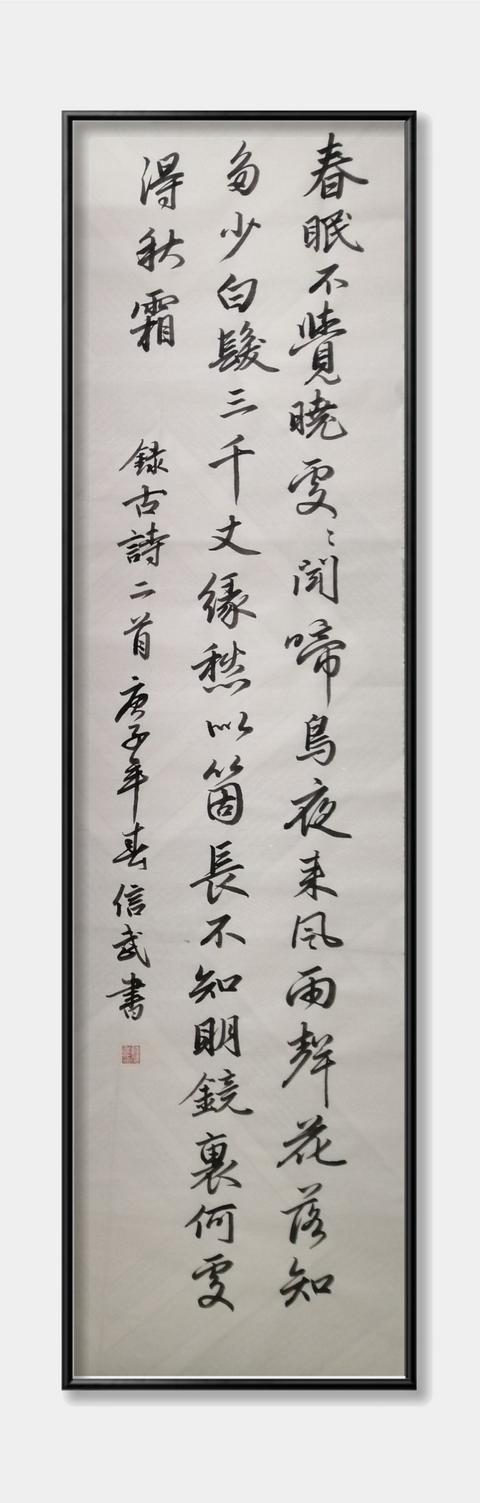 春眠不覺曉處〻聞啼鳥夜来風雨聲花落知
多少白髮三千丈緣愁似箇長不知明鏡裏何處
得秋霜
録古詩二首庚子年春信武書